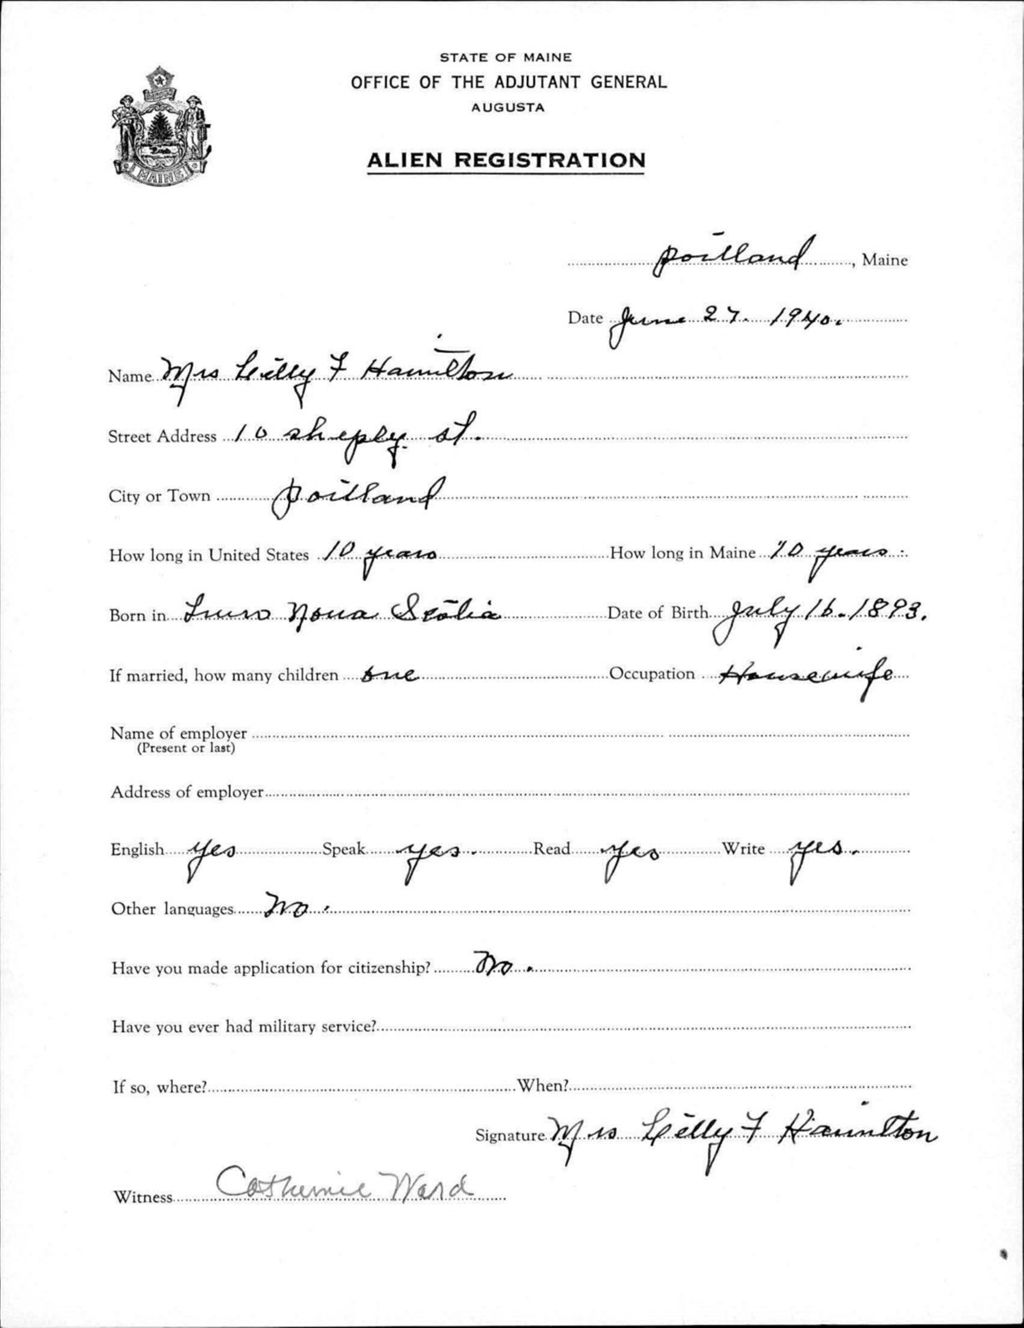 STATE OF MAINE
OFFICE OF THE ADJUTANT GENERAL
AUGUSTA
ALIEN REGISTRATION
MAINE
Portland, Maine
Date June 27. 1940.
Name Mrs Lilly F Hamilton
Street Address 10 sheply st.
City or Town Portland
How long in United States 10 years How long in Maine 10 years.
Born in Truro Nova Scotia Date of Birth July 16. 1893.
If married, how many children one Occupation Housewife
Name of employer
(Present or last)
Address of employer
English yes Speak yes. Read yes Write yes.
Other languages No.
Have you made application for citizenship? No.
Have you ever had military service?
If so, where? When?
Signature Mrs Lilly F Hamilton
Witness Catherine Ward